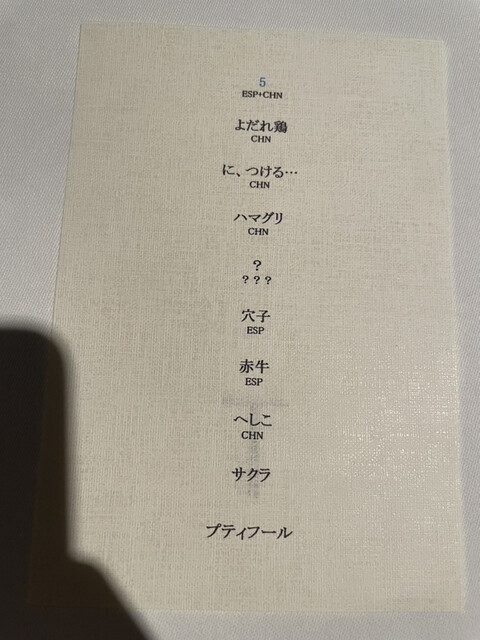 5
ESP+CHN
よだれ鶏
CHN
に、つける…
CHN
ハマグリ
CHN
？
？？？
穴子
ESP
赤牛
ESP
へしこ
CHN
サクラ
プティフール